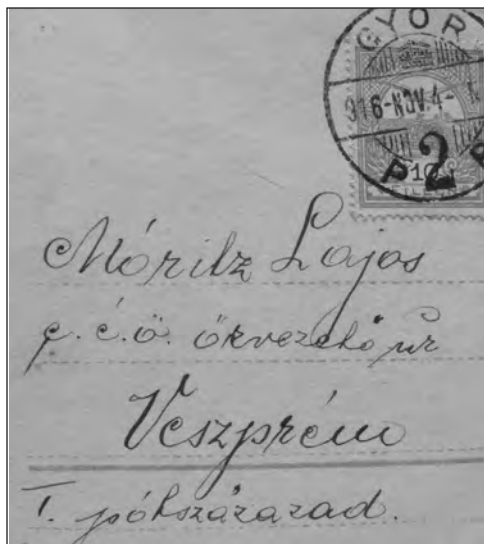 GYŐR
916-NOV.4-
2
10
FILLÉR
Móritz Lajos
e. é. ö. őrvezető úr
Veszprém
I. pótszázarad.